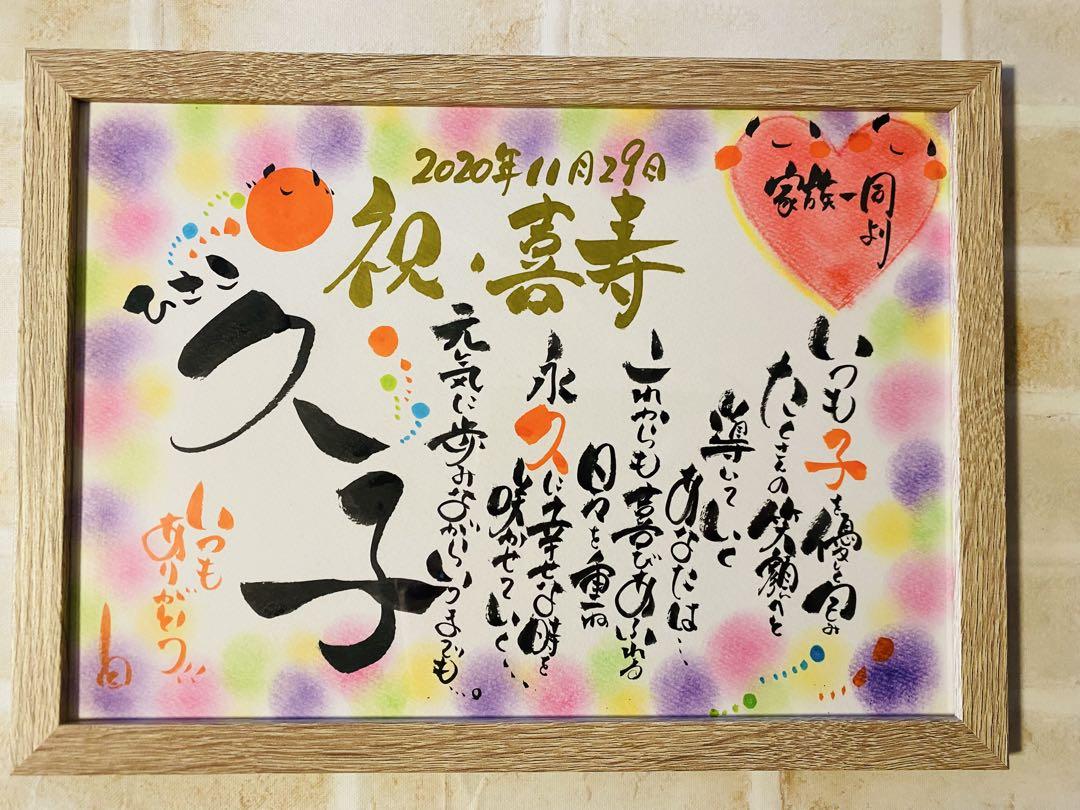 2020年11月29日
祝・喜寿
家族一同
より
ひさこ
久子
いつも子を優しく包み
たくさんの笑顔へと
導いていく
あなたは…
これからも喜びあふれる
日々を重ね
永久に幸せな時を
咲かせていく…
元気に歩みながらいつまでも…。
いつも
ありがとう